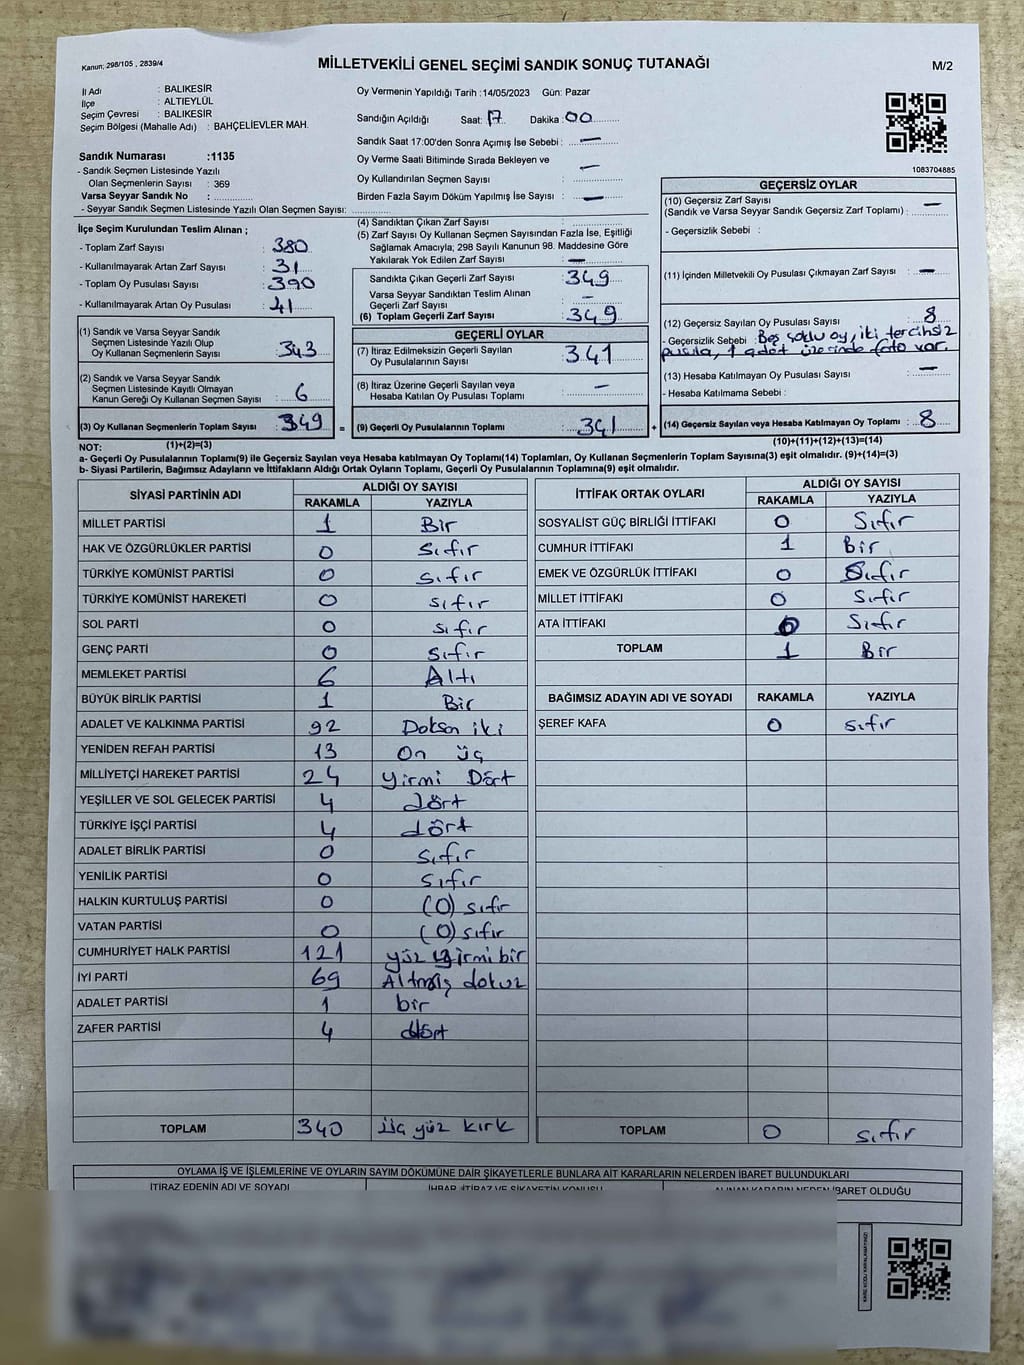 Kanun: 298/105 , 2839/4
MİLLETVEKİLİ GENEL SEÇİMİ SANDIK SONUÇ TUTANAĞI
M/2
İl Adı : BALIKESİR
İlçe : ALTIEYLÜL
Seçim Çevresi : BALIKESİR
Seçim Bölgesi (Mahalle Adı) : BAHÇELİEVLER MAH.
Sandık Numarası :1135
- Sandık Seçmen Listesinde Yazılı
Olan Seçmenlerin Sayısı : 369
Varsa Seyyar Sandık No :
- Seyyar Sandık Seçmen Listesinde Yazılı Olan Seçmen Sayısı:
Oy Vermenin Yapıldığı Tarih :14/05/2023 Gün: Pazar
Sandığın Açıldığı Saat: 17 Dakika : 00
Sandık Saat 17:00'den Sonra Açımış İse Sebebi : —
Oy Verme Saati Bitiminde Sırada Bekleyen ve
Oy Kullandırılan Seçmen Sayısı —
Birden Fazla Sayım Döküm Yapılmış İse Sayısı : —
1083704885
İlçe Seçim Kurulundan Teslim Alınan ;
- Toplam Zarf Sayısı : 380
- Kullanılmayarak Artan Zarf Sayısı : 31
- Toplam Oy Pusulası Sayısı : 390
- Kullanılmayarak Artan Oy Pusulası : 41
(1) Sandık ve Varsa Seyyar Sandık
Seçmen Listesinde Yazılı Olup
Oy Kullanan Seçmenlerin Sayısı : 343
(2) Sandık ve Varsa Seyyar Sandık
Seçmen Listesinde Kayıtlı Olmayan
Kanun Gereği Oy Kullanan Seçmen Sayısı : 6
(3) Oy Kullanan Seçmenlerin Toplam Sayısı : 349
(1)+(2)=(3)
(4) Sandıktan Çıkan Zarf Sayısı :
(5) Zarf Sayısı Oy Kullanan Seçmen Sayısından Fazla İse, Eşitliği
Sağlamak Amacıyla; 298 Sayılı Kanunun 98. Maddesine Göre
Yakılarak Yok Edilen Zarf Sayısı : —
Sandıkta Çıkan Geçerli Zarf Sayısı : 349
Varsa Seyyar Sandıktan Teslim Alınan
Geçerli Zarf Sayısı : —
(6) Toplam Geçerli Zarf Sayısı : 349
=
GEÇERLİ OYLAR
(7) İtiraz Edilmeksizin Geçerli Sayılan
Oy Pusulalarının Sayısı : 341
(8) İtiraz Üzerine Geçerli Sayılan veya
Hesaba Katılan Oy Pusulası Toplamı : —
(9) Geçerli Oy Pusulalarının Toplamı : 341
+
GEÇERSİZ OYLAR
(10) Geçersiz Zarf Sayısı
(Sandık ve Varsa Seyyar Sandık Geçersiz Zarf Toplamı) : —
- Geçersizlik Sebebi :
(11) İçinden Milletvekili Oy Pusulası Çıkmayan Zarf Sayısı : —
(12) Geçersiz Sayılan Oy Pusulası Sayısı : 8
- Geçersizlik Sebebi : Beş oy, iki tercihsiz
pusula, 1 adet üzerinde foto var.
(13) Hesaba Katılmayan Oy Pusulası Sayısı : —
- Hesaba Katılmama Sebebi :
(14) Geçersiz Sayılan veya Hesaba Katılmayan Oy Toplamı : 8
(10)+(11)+(12)+(13)=(14)
NOT:
a- Geçerli Oy Pusulasının Toplamı(9) ile Geçersiz Sayılan veya Hesaba katılmayan Oy Toplamı(14) Toplamları, Oy Kullanan Seçmenlerin Toplam Sayısına(3) eşit olmalıdır. (9)+(14)=(3)
b- Siyasi Partilerin, Bağımsız Adayların ve İttifakların Aldığı Ortak Oyların Toplamı, Geçerli Oy Pusulalarının Toplamına(9) eşit olmalıdır.
SİYASİ PARTİNİN ADI ALDIĞI OY SAYISI
RAKAMLA YAZIYLA
MİLLET PARTİSİ 1 Bir
HAK VE ÖZGÜRLÜKLER PARTİSİ 0 Sıfır
TÜRKİYE KOMÜNİST PARTİSİ 0 sıfır
TÜRKİYE KOMÜNİST HAREKETİ 0 sıfır
SOL PARTİ 0 sıfır
GENÇ PARTİ 0 sıfır
MEMLEKET PARTİSİ 6 Altı
BÜYÜK BİRLİK PARTİSİ 1 Bir
ADALET VE KALKINMA PARTİSİ 92 Doksan iki
YENİDEN REFAH PARTİSİ 13 On üç
MİLLİYETÇİ HAREKET PARTİSİ 24 yirmi Dört
YEŞİLLER VE SOL GELECEK PARTİSİ 4 dört
TÜRKİYE İŞÇİ PARTİSİ 4 dört
ADALET BİRLİK PARTİSİ 0 sıfır
YENİLİK PARTİSİ 0 sıfır
HALKIN KURTULUŞ PARTİSİ 0 (0) sıfır
VATAN PARTİSİ 0 (0) sıfır
CUMHURİYET HALK PARTİSİ 121 yüz yirmi bir
İYİ PARTİ 69 Altmış dokuz
ADALET PARTİSİ 1 bir
ZAFER PARTİSİ 4 dört
TOPLAM 340 üç yüz kırk
İTTİFAK ORTAK OYLARI ALDIĞI OY SAYISI
RAKAMLA YAZIYLA
SOSYALİST GÜÇ BİRLİĞİ İTTİFAKI 0 Sıfır
CUMHUR İTTİFAKI 1 Bir
EMEK VE ÖZGÜRLÜK İTTİFAKI 0 Sıfır
MİLLET İTTİFAKI 0 Sıfır
ATA İTTİFAKI 0 Sıfır
TOPLAM 1 Bir
BAĞIMSIZ ADAYIN ADI VE SOYADI RAKAMLA YAZIYLA
ŞEREF KAFA 0 sıfır
TOPLAM 0 sıfır
OYLAMA İŞ VE İŞLEMLERİNE VE OYLARIN SAYIM DÖKÜMÜNE DAİR ŞİKAYETLERLE BUNLARA AİT KARARLARIN NELERDEN İBARET BULUNDUKLARI
İTİRAZ EDENİN ADI VE SOYADI
İHBAR, İTİRAZ VE ŞİKAYETİN KONUSU
ALINAN KARARIN NEDEN İBARET OLDUĞU
KARE KODU KARALAMAYINIZ!